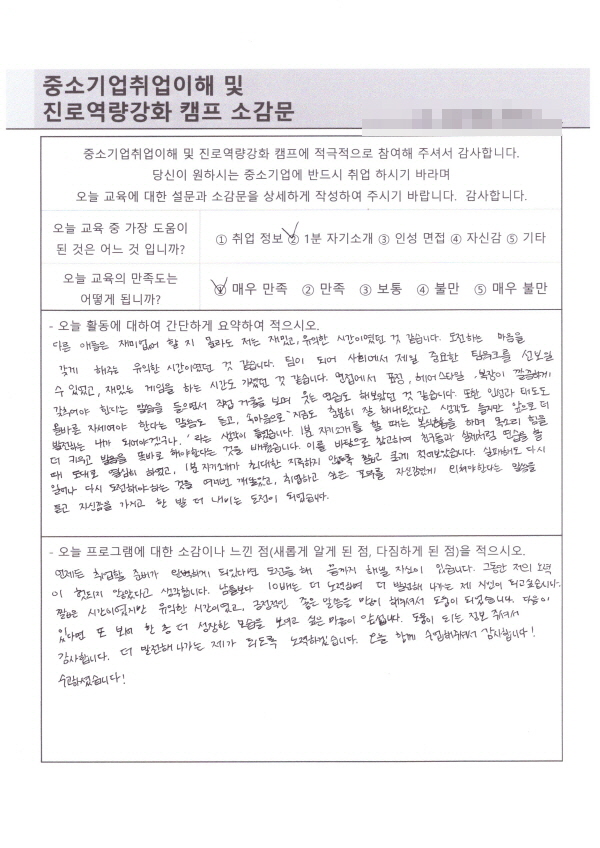 중소기업취업이해 및
진로역량강화 캠프 소감문
중소기업취업이해 및 진로역량강화 캠프에 적극적으로 참여해 주셔서 감사합니다.
당신이 원하시는 중소기업에 반드시 취업 하시기 바라며
오늘 교육에 대한 설문과 소감문을 상세하게 작성하여 주시기 바랍니다. 감사합니다.
오늘 교육 중 가장 도움이
된 것은 어느 것 입니까?
① 취업 정보 ② 1분 자기소개 ③ 인성 면접 ④ 자신감 ⑤ 기타
오늘 교육의 만족도는
어떻게 됩니까?
① 매우 만족 ② 만족 ③ 보통 ④ 불만 ⑤ 매우 불만
- 오늘 활동에 대하여 간단하게 요약하여 적으시오.
다른 애들은 재미없어 할 지 몰라도 저는 재밌고, 유익한 시간이였던 것 같습니다. 도전하는 마음을
갖게 해주는 유익한 시간이였던 것 같습니다. 팀이 되어 사회에서 제일 중요한 팀워크를 선보일
수 있었고, 재밌는 게임을 하는 시간도 가졌던 것 같습니다. 면접에서 표정, 헤어스타일, 복장이 깔끔하게
갖추어야 한다는 말씀을 들으면서 직접 거울을 보며 웃는 연습도 해보았던 것 같습니다. 또한 인성과 태도도
올바른 자세여야 한다는 말씀도 듣고, 속마음으로 '지금도 충분히 잘 해내왔다고 생각도 들지만 앞으로 더
발전하는 내가 되어야겠구나.' 라는 생각이 들었습니다. 1분 자기소개를 할 때는 목소리 힘을
더 키우고 발음을 똑바로 해야한다는 것을 배웠습니다. 이를 바탕으로 참고하여 친구들과 실제처럼 연습을 할
때 또대로 열심히 하였고, 1분 자기소개가 최대한 지루하지 않도록 짧고 굵게 적어보았습니다. 실패해도 다시
일어나 다시 도전해야하는 것을 여러번 깨달았고, 취업하고 싶은 포부를 자신감있게 외쳐야한다는 말씀을
듣고 자신감을 가지고 한 발 더 내미는 도전이 되었습니다.
- 오늘 프로그램에 대한 소감이나 느낀 점(새롭게 알게 된 점, 다짐하게 된 점)을 적으시오.
언제든 취업할 준비가 완벽하게 되있다면 도전을 해 끝까지 해낼 자신이 있습니다. 그동안 저의 노력
이 헛되지 않았다고 생각합니다. 남들보다 10배는 더 노력하여 더 발전해 나가는 제 자신이 되고싶습니다.
짧은 시간이였지만 유익한 시간이였고, 긍정적인 좋은 말씀을 많이 해주셔서 도움이 되었습니다. 다음에
있다면 또 보며 한 층 더 성장한 모습을 보여고 싶은 마음이 앞섭니다. 도움이 되는 정보 주셔서
감사합니다. 더 발전해나가는 제가 되도록 노력하겠습니다. 오늘 함께 수업해주셔서 감사합니다!
수고하셨습니다!